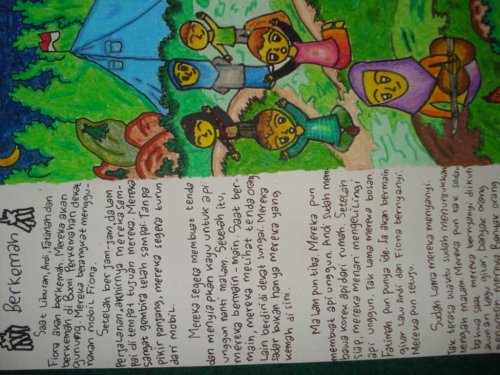 Berkemah
Saat liburan, Andi, Fatimah dan
Fiona akan berkemah. Mereka akan
berkemah di Bumi Perkemahan dekat
Gunung. Mereka berangkat menggu-
nakan mobil Fiona.
Setelah ber jam-jam, dalam
Perjalanan, akhirnya mereka sam-
pai di tempat tujuan mereka. Mereka
sangat gembira telah sampai. Tanpa
pikir panjang, mereka segera turun
dari mobil.
Mereka segera membuat tenda
dan menyiapkan kayu untuk api
unggun nanti malam. Setelah itu,
mereka bermain-main. Saat ber-
main mereka melihat tenda orang
lain berdiri di dekat sungai. Mereka
sadar bukan hanya mereka yang
kemah di sini.
Malam pun tiba. Mereka pun
membuat api unggun. Andi sudah mem-
bawa korek api dari rumah. Setelah
siap, mereka menari mengelilingi
api unggun. Tak lama mereka bosan.
Fatimah pun punya ide. Ia akan bermain
gitar lalu Andi dan Fiona bernyanyi.
Mereka pun setuju.
Sudah lama mereka menyanyi.
Tak terasa waktu sudah menunjukkan
tengah malam. Mereka pun tak sadar
bahwa saat mereka bernyanyi diikuti
gitar, banyak orang